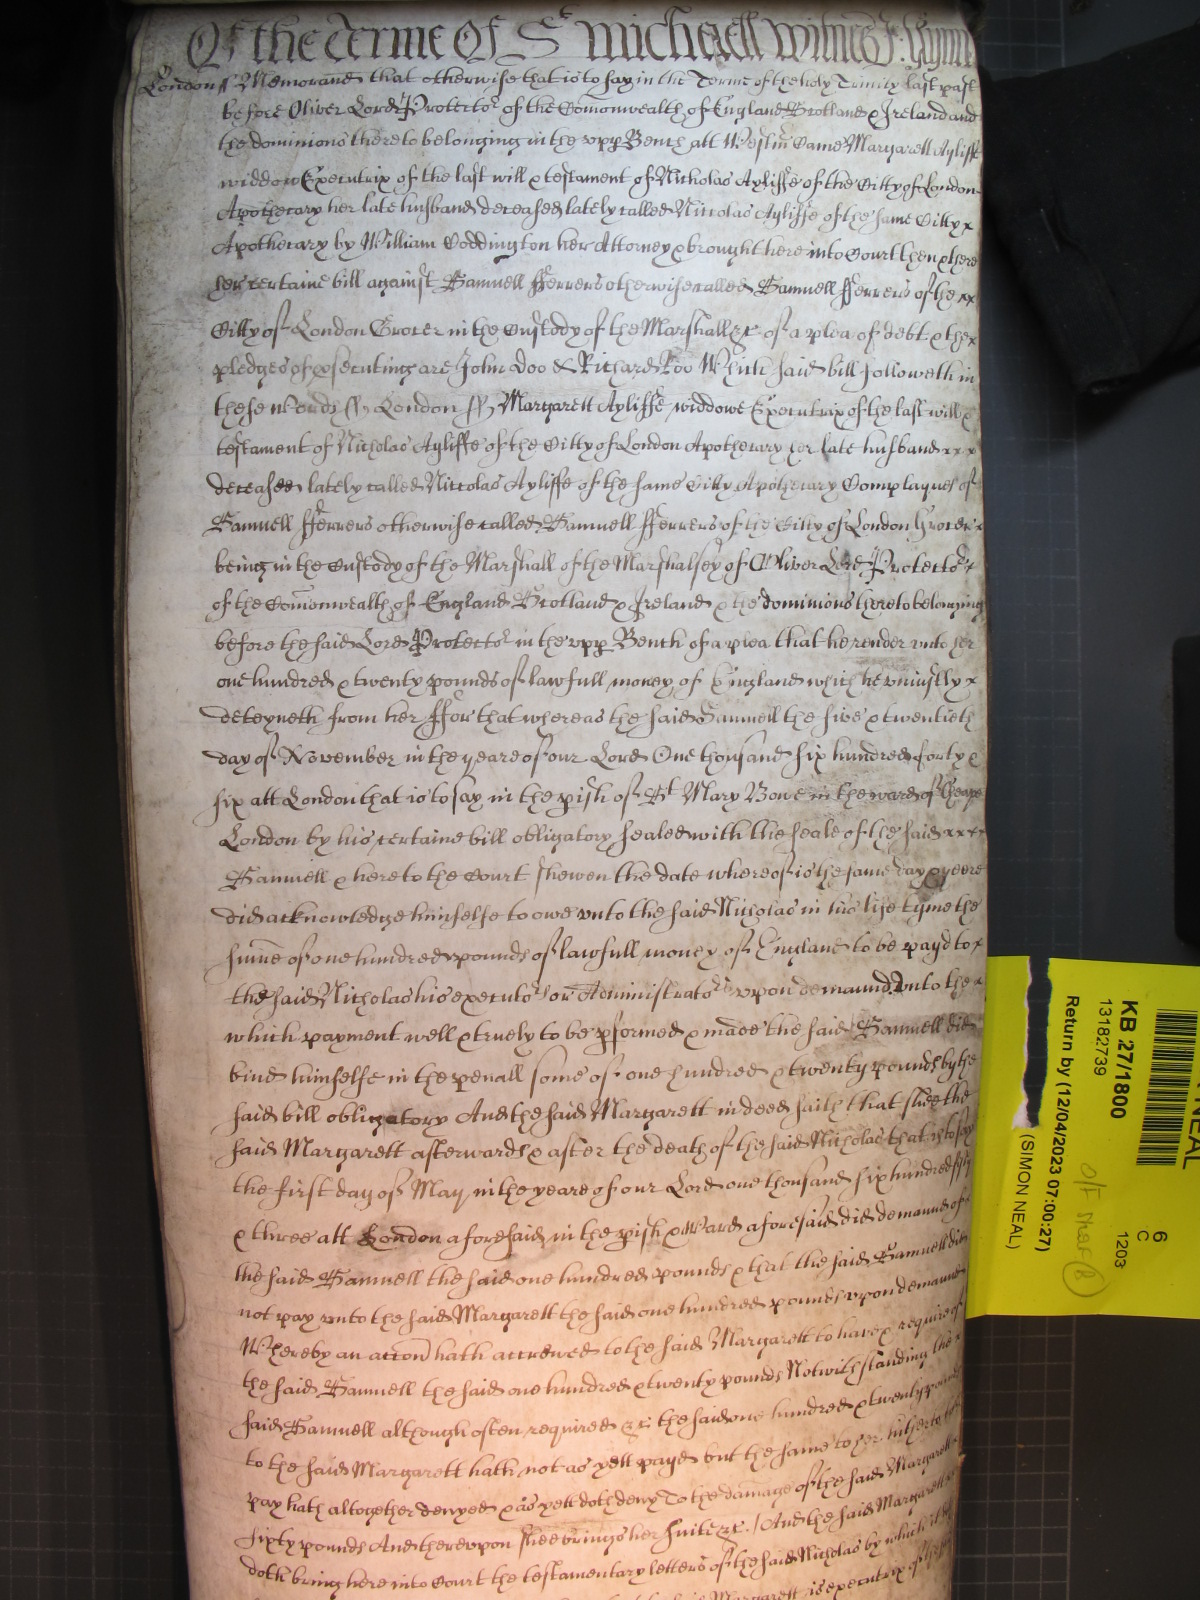 Of the Terme Of St Michaell Witnes J: Glynn
London ss Memorand that otherwise that is to say in the Terme of the holy Trinity last past
before Oliver Lord Protector of the Comonwealth of England Scotland & Ireland and
the dominions thereto belonging in the upp Bench att Westm Came Margarett Ayliffe
widdow Executrix of the last will & testament of Nicholas Ayliffe of the Citty of London
Apothecary her late husband deceased lately called Niccolas Ayliffe of the same Citty x
Apothecary by William Coddington her Attorney & brought here into Court then & there
her certaine bill against Samuell fferrers otherwise called Samuell fferrers of the xx
Citty of London Grocer in the Custody of the Marshall &c of a plea of debt & the x
pledges of psecuting are John Doo & Richard Roo Which said bill followeth in
these words ss London ss Margarett Ayliffe widdowe Executrix of the last will &
testament of Nicholas Ayliffe of the Citty of London Apothecary her late husband x x x
deceased lately called Niccolas Ayliffe of the same Citty Apothecary Complaynes of
Samuell fferrers otherwise called Samuell fferrers of the Citty of London Grocer x
being in the Custody of the Marshall of the Marshalsey of Oliver Lord Protector x
of the Comonwealth of England Scotland & Ireland & the dominions thereto belonging
before the said Lord Protector in the upp Bench of a plea that he render unto her
one hundred & twenty pounds of lawfull money of England which he uniustly x
deteyneth from her ffor that whereas the said Samuell the five & twentieth
day of November in the yeare of our Lord One thousand six hundred forty &
six att London that is to say in the pish of St Mary Bowe in the ward of Cheape
London by his certaine bill obligatory sealed with the seale of the said x x x
Samuell & here to the Court shewen the date whereof is the same day & yeere
did acknowledge himselfe to owe unto the said Nicholas in his life tyme the
sume of one hundred pounds of lawfull money of England to be payd to x
the said Nicholas his executors or Administrators upon demaund Unto the x
which payment well & truely to be pformed & made the said Samuell did
bind himselfe in the penall some of one hundred & twenty pounds by the
said bill obligatory And the said Margarett in deed saith that shee the
said Margarett afterwards & after the death of the said Nicholas that is to say
the first day of May in the yeare of our Lord one thousand six hundred fifty
& three att London aforesaid in the pish & Ward aforesaid did demaund of
the said Samuell the said one hundred pounds & that the said Samuell did
not pay unto the said Margarett the said one hundred pounds upon demaund
Whereby an accon hath accrewed to the said Margarett to have & require of
the said Samuell the said one hundred & twenty pounds Notwithstanding the x
said Samuell although often required &c the said one hundred & twenty pounds
to the said Margarett hath not as yett payd but the same to her hitherto to
pay hath altogether denyed & as yett doth deny To the damage of the said Margarett
sixty pounds And thereupon shee brings her suite &c. / And the said Margarett
doth bring here into Court the testamentary letters of the said Nicholas by which it
Margarett is executrix of the
NEAL
KB 27/1800
13182739
Return by (12/04/2023 07:00:27)
(SIMON NEAL)
6
C
1203